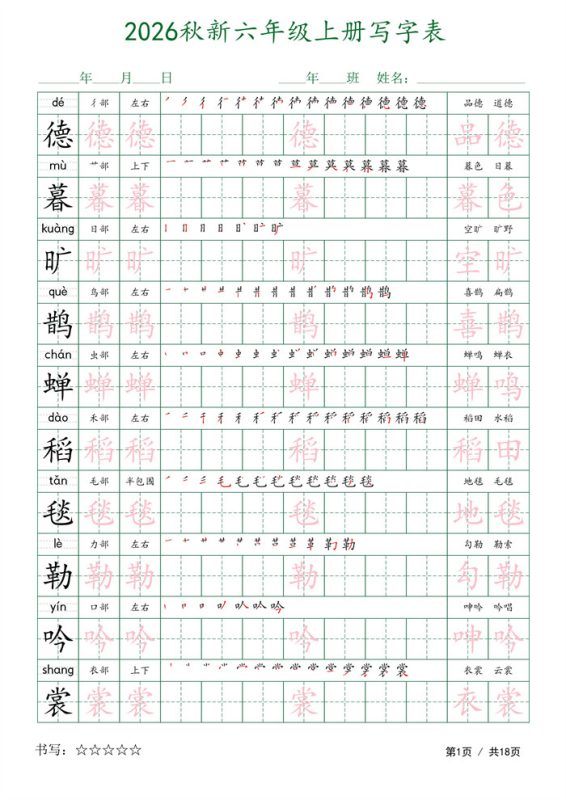 2026秋新六年级上册写字表
______年____月____日 ____年____班 姓名：________________
dé 彳部 左右 品德 道德
德 德 德 德 品 德
mù 艹部 上下 暮色 日暮
暮 暮 暮 暮 暮 色
kuàng 日部 左右 空旷 旷野
旷 旷 旷 旷 空 旷
què 鸟部 左右 喜鹊 扁鹊
鹊 鹊 鹊 鹊 喜 鹊
chán 虫部 左右 蝉鸣 蝉衣
蝉 蝉 蝉 蝉 蝉 鸣
dào 禾部 左右 稻田 水稻
稻 稻 稻 稻 稻 田
tǎn 毛部 半包围 地毯 毛毯
毯 毯 毯 毯 地 毯
lè 力部 左右 勾勒 勒索
勒 勒 勒 勒 勾 勒
yín 口部 左右 呻吟 吟唱
吟 吟 吟 吟 呻 吟
shang 衣部 上下 衣裳 云裳
裳 裳 裳 裳 衣 裳
书写：☆☆☆☆☆ 第1页 / 共18页